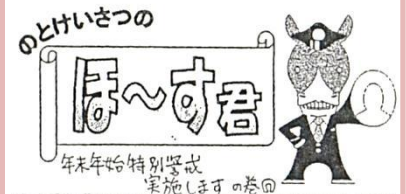 のとけいさつの
ほ～す君
年末年始特別警戒
実施しますの巻